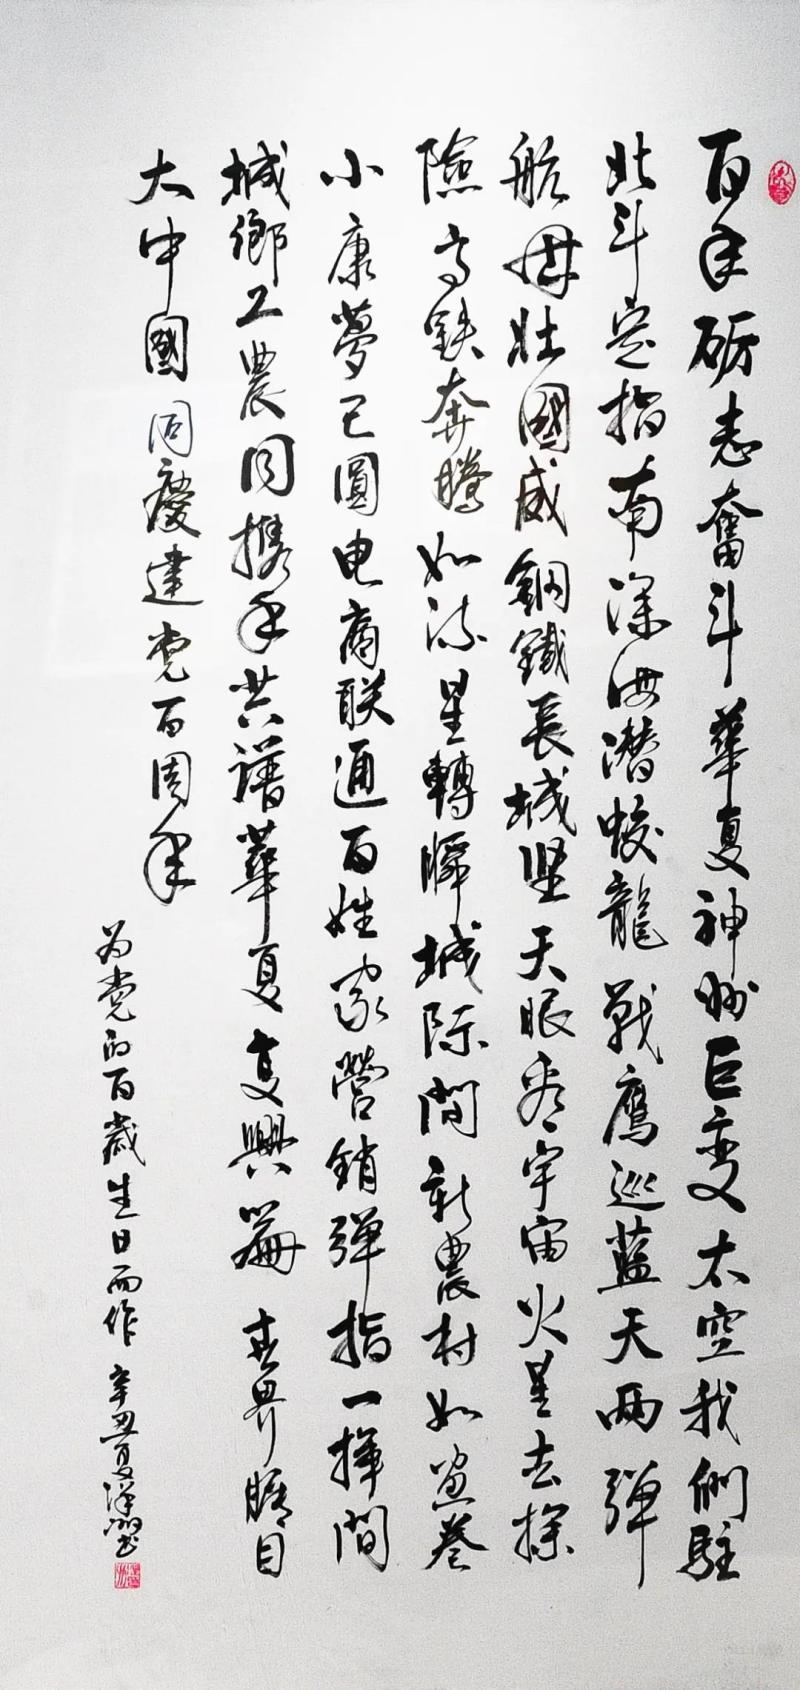 百年砺志奮斗華夏神州巨变太空我們駐
北斗定指南深海潜蛟龍戰鹰巡蓝天两弹
航母壮國威鋼鐵長城坚天眼看宇宙火星去探
險高鉄奔騰如流星轉瞬城际間新農村如画卷
小康夢已圓电商联通百姓家營銷弹指一揮間
城鄉工農同携手共譜華夏复興篇世界瞩目
大中國同慶建党百周年
为党的百歲生日而作 辛丑夏洋